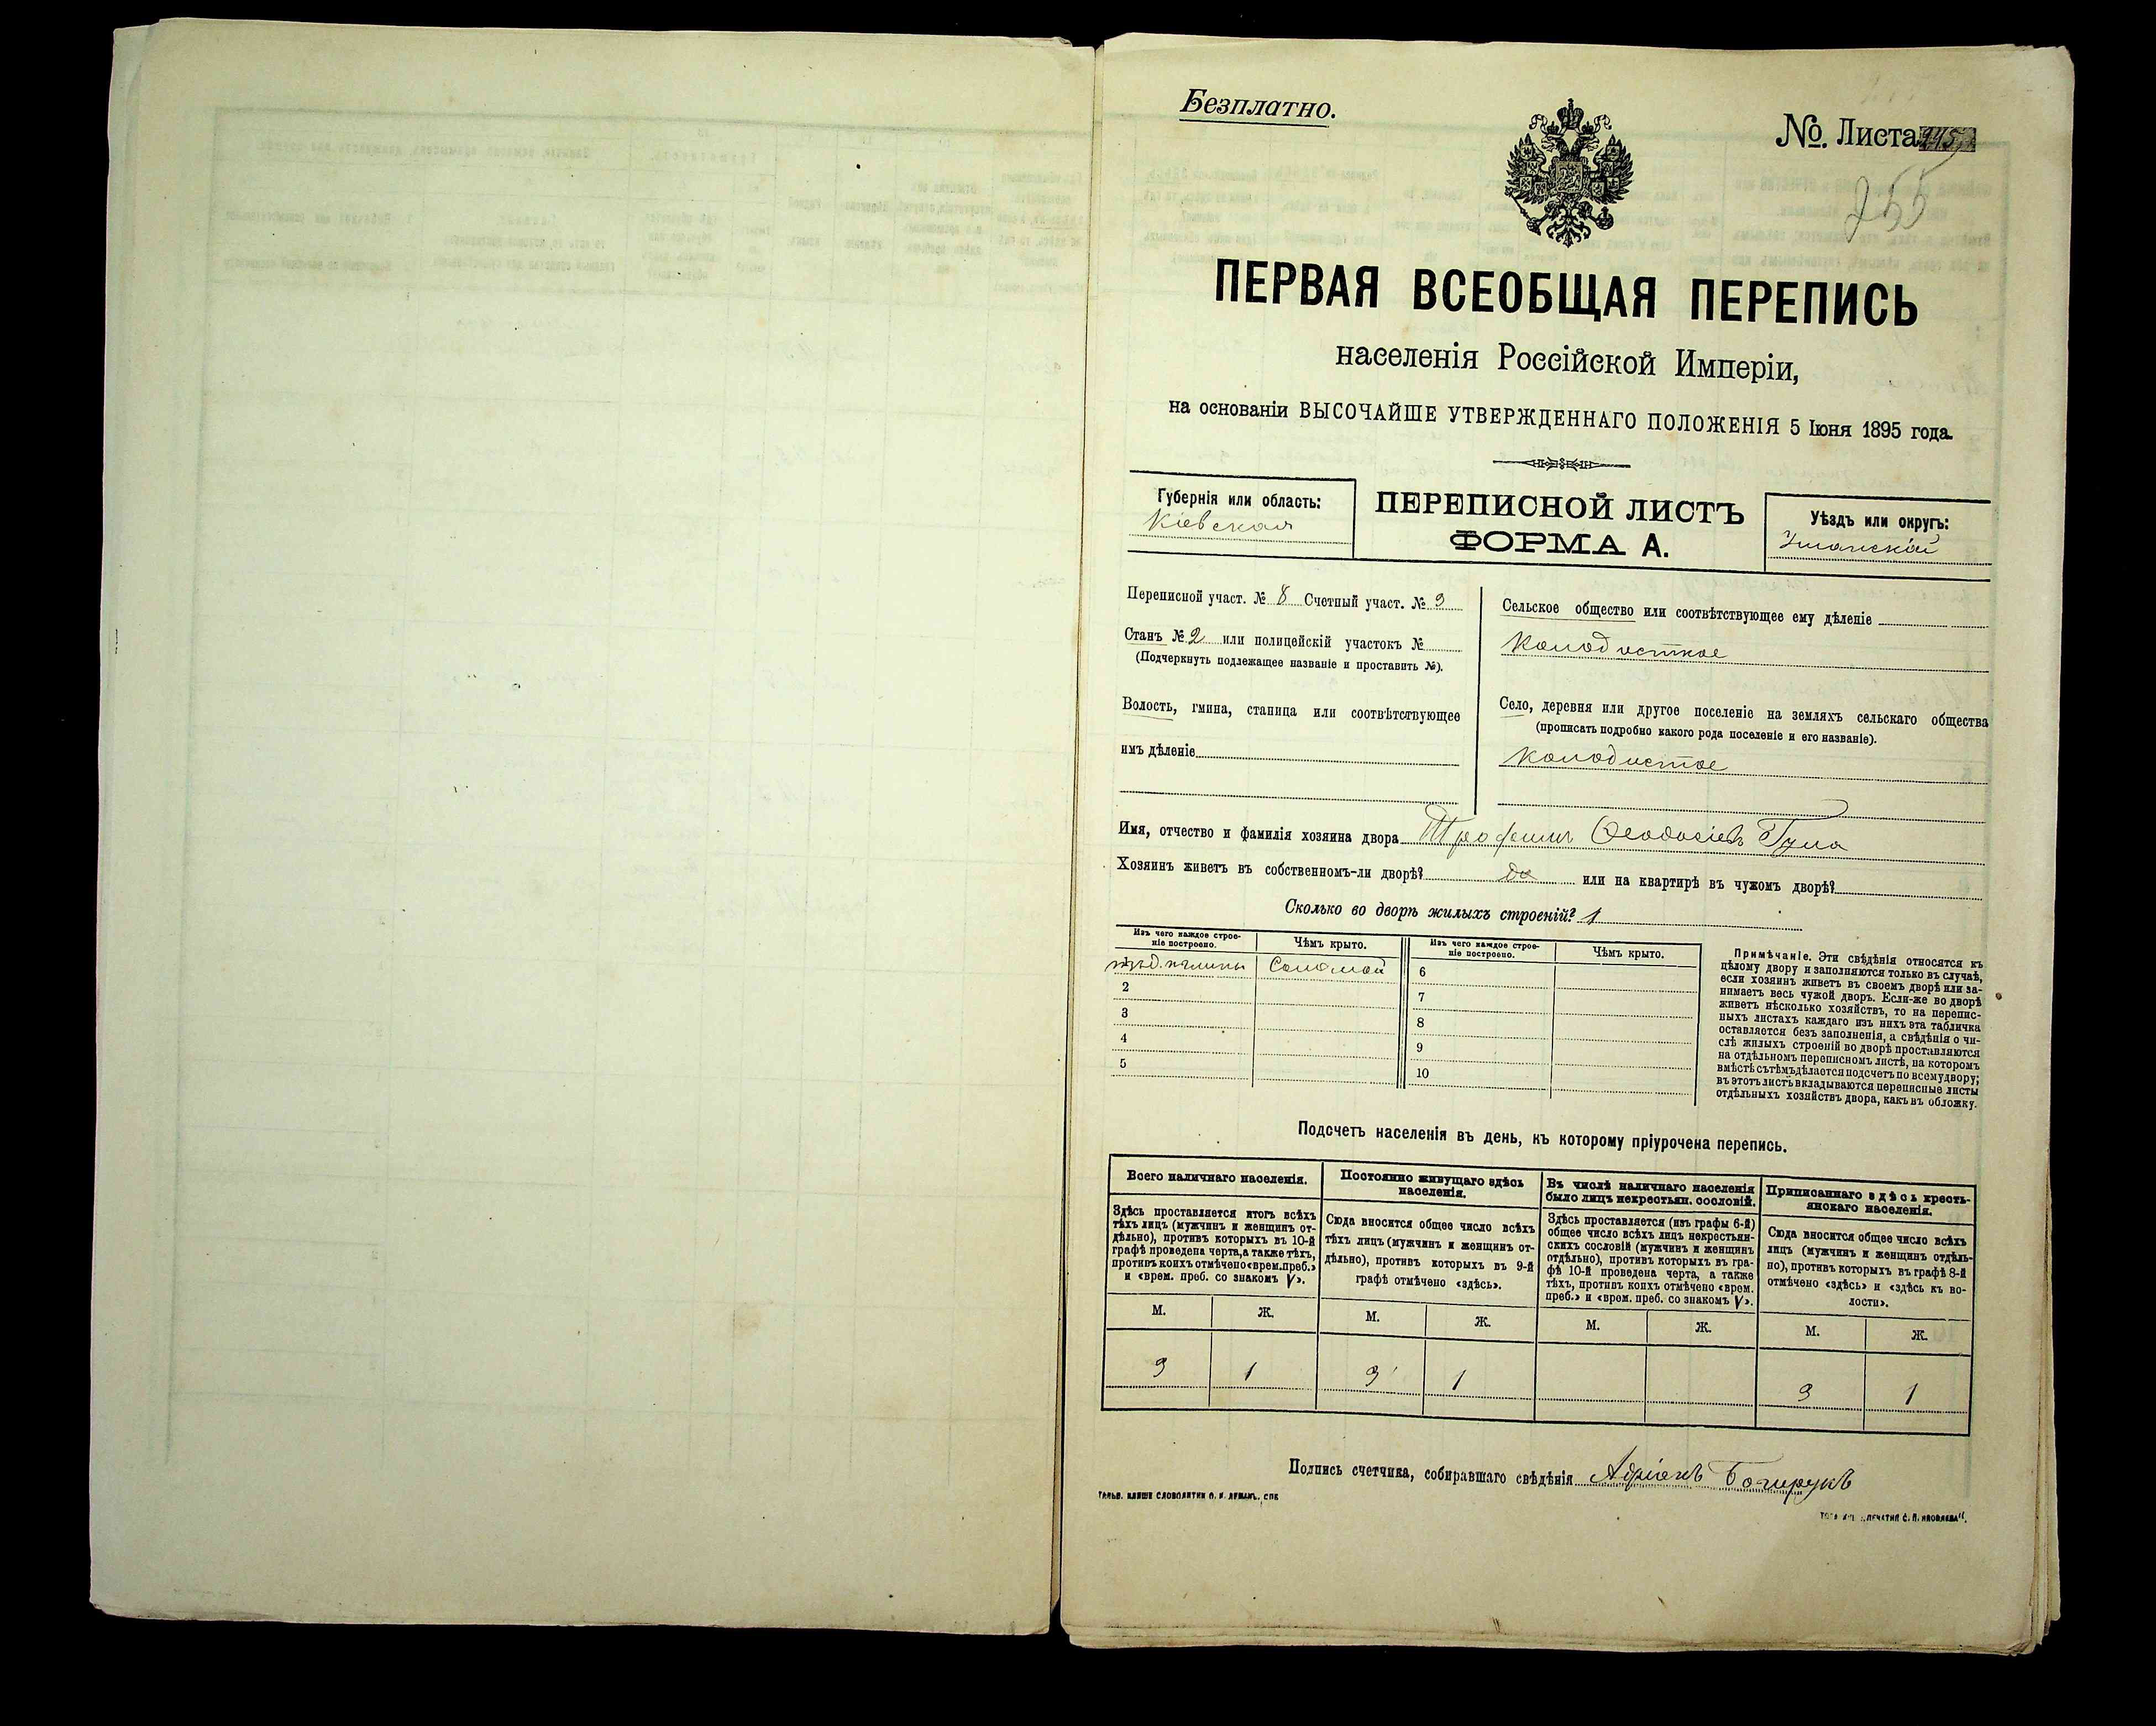 Безплатно.
№. Листа
255
ПЕРВАЯ ВСЕОБЩАЯ ПЕРЕПИСЬ
населенія Россійской Имперіи,
на основаніи ВЫСОЧАЙШЕ УТВЕРЖДЕННАГО ПОЛОЖЕНІЯ 5 Іюня 1895 года.
Губернія или область:
Кіевская
ПЕРЕПИСНОЙ ЛИСТЪ
ФОРМА А.
Уѣздъ или округъ:
Уманскій
Переписной участ. № 8 Счетный участ. № 3
Станъ № 2 или полицейскій участокъ №
(Подчеркнуть подлежащее названіе и проставить №).
Волость, гмина, станица или соотвѣтствующее
имъ дѣленіе
Сельское общество или соотвѣтствующее ему дѣленіе
Колодистое
Село, деревня или другое поселеніе на земляхъ сельскаго общества
(прописать подробно какого рода поселеніе и его названіе).
Колодистое
Имя, отчество и фамилія хозяина двора Трофимъ Ѳеодосіевъ Гула
Хозяинъ живетъ въ собственномъ-ли дворѣ? да или на квартирѣ въ чужомъ дворѣ?
Сколько во дворѣ жилыхъ строеній? 1
Изъ чего каждое строе-
ніе построено.
Чѣмъ крыто.
Изъ чего каждое строе-
ніе построено.
Чѣмъ крыто.
Соломой
6
2
7
3
8
4
9
5
10
Примѣчаніе. Эти свѣдѣнія относятся къ
цѣлому двору и заполняются только въ случаѣ,
если хозяинъ живетъ въ своемъ дворѣ или за-
нимаетъ весь чужой дворъ. Если-же во дворѣ
живетъ нѣсколько хозяйствъ, то на перепис-
ныхъ листахъ каждаго изъ нихъ эта табличка
оставляется безъ заполненія, а свѣдѣнія о чи-
слѣ жилыхъ строеній во дворѣ проставляются
на отдѣльномъ переписномъ листѣ, на которомъ
вмѣстѣ съ тѣмъ дѣлается подсчетъ по всему двору;
въ этотъ листъ вкладываются переписные листы
отдѣльныхъ хозяйствъ двора, какъ въ обложку.
Подсчетъ населенія въ день, къ которому пріурочена перепись.
Всего наличнаго населенія.
Здѣсь проставляется итогъ всѣхъ
тѣхъ лицъ (мужчинъ и женщинъ от-
дѣльно), противъ которыхъ въ 10-й
графѣ проведена черта, а также тѣхъ,
противъ коихъ отмѣчено «врем. преб.»
и «врем. преб. со знакомъ V».
Постоянно живущаго здѣсь
населенія.
Сюда вносится общее число всѣхъ
тѣхъ лицъ (мужчинъ и женщинъ от-
дѣльно), противъ которыхъ въ 9-й
графѣ отмѣчено «здѣсь».
Въ числѣ наличнаго населенія
было лицъ некрестьян. сословій.
Здѣсь проставляется (изъ графы 6-й)
общее число всѣхъ лицъ некрестьян-
скихъ сословій (мужчинъ и женщинъ
отдѣльно), противъ которыхъ въ гра-
фѣ 10-й проведена черта, а также
тѣхъ, противъ коихъ отмѣчено «врем.
преб.» и «врем. преб. со знакомъ V».
Приписаннаго здѣсь кресть-
янскаго населенія.
Сюда вносится общее число всѣхъ
лицъ (мужчинъ и женщинъ отдѣль-
но), противъ которыхъ въ графѣ 8-й
отмѣчено «здѣсь» и «здѣсь къ во-
лости».
М. Ж. М. Ж. М. Ж. М. Ж.
3 1 3 1 3 1
Подпись счетчика, собиравшаго свѣдѣнія Адріанъ